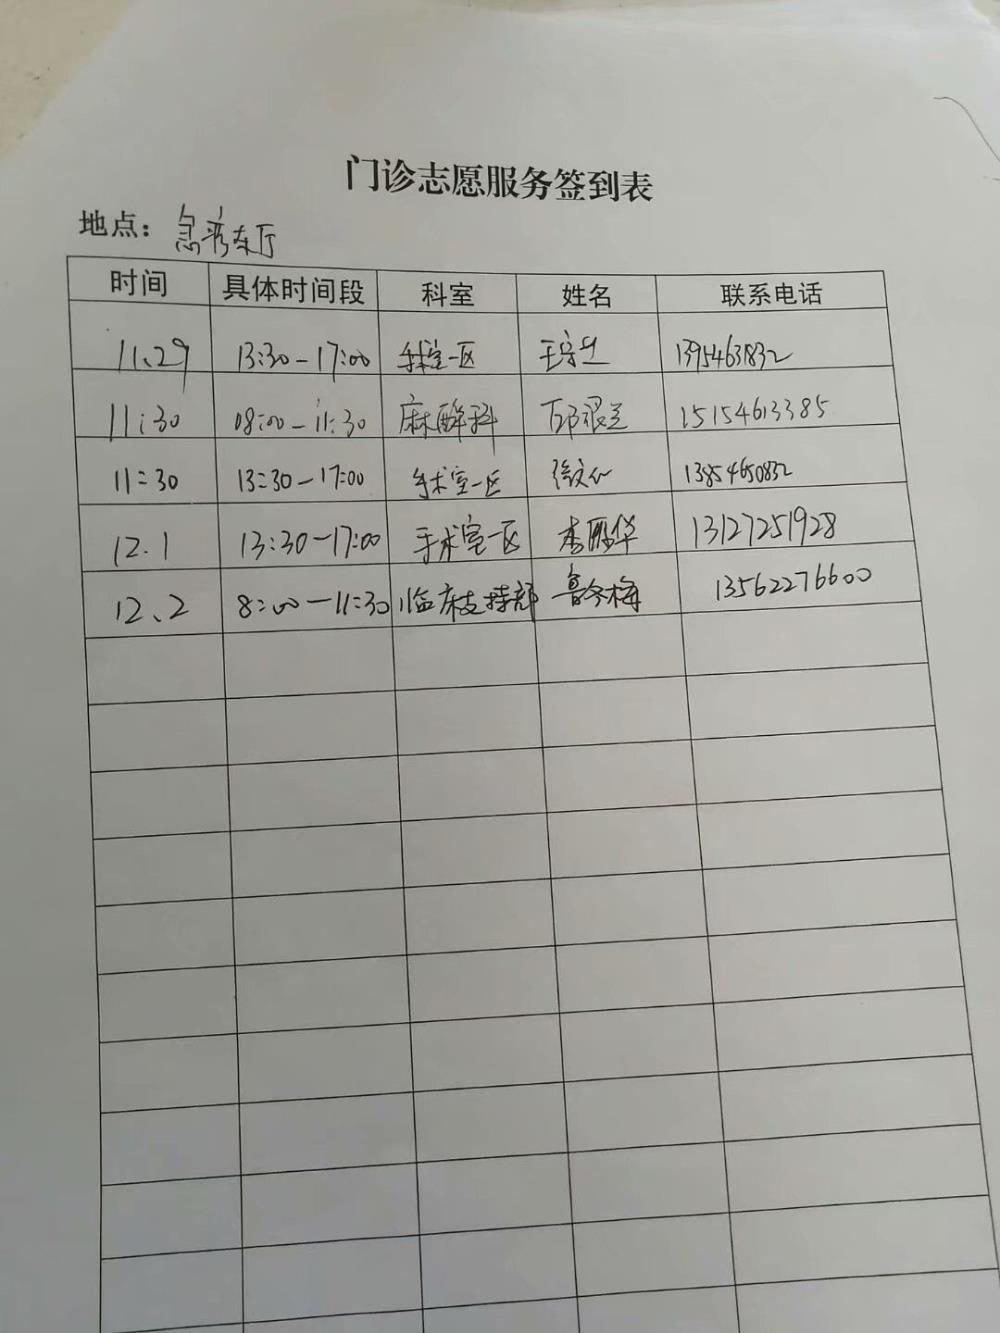 门诊志愿服务签到表
地点: 急诊东厅
时间 具体时间段 科室 姓名 联系电话
11、29 13:30-17:00 手术室一区 1395463832
11:30 08:00-11:30 麻醉科 15154613385
11:30 13:30-17:00 手术室一区 1385460832
12.1 13:30-17:00 手术室一区 李丽华 13127251928
12、2 8:00-11:30 临床支持部 鲁冬梅 13562276600